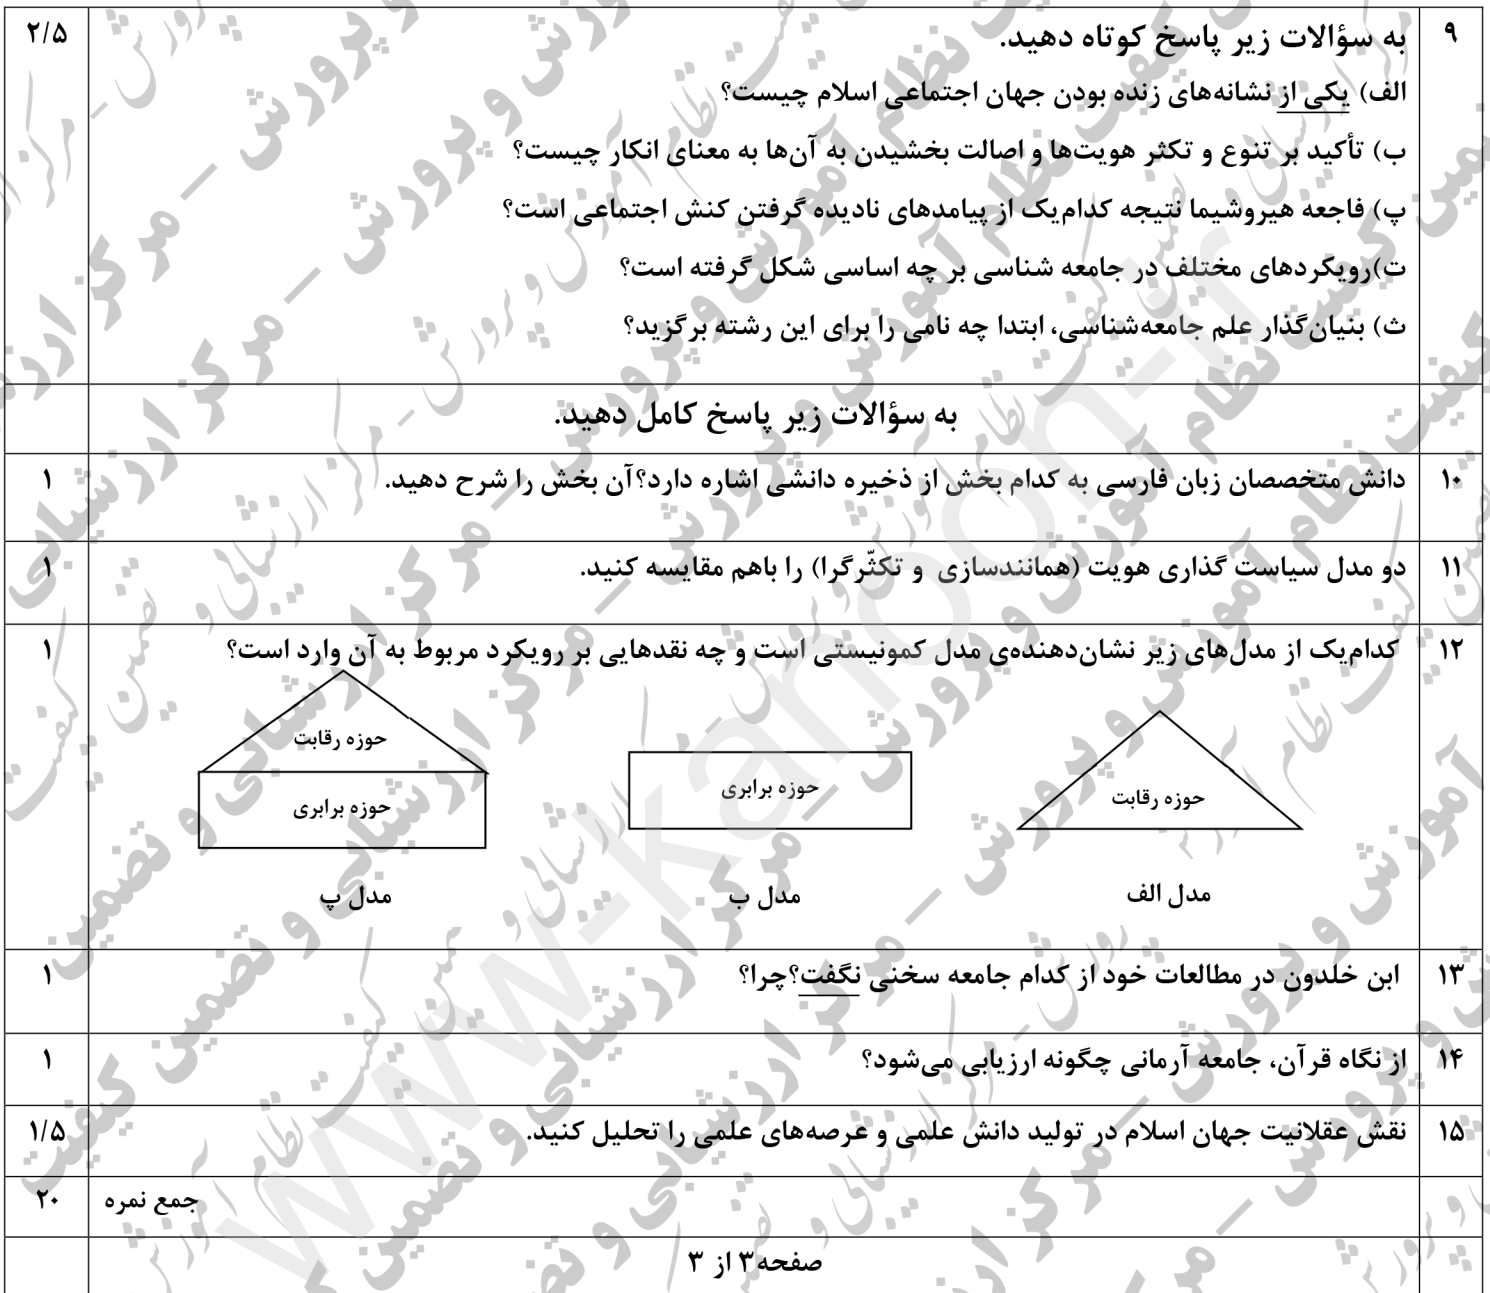 ۹ به سؤالات زیر پاسخ کوتاه دهید. ۲/۵
الف) یکی از نشانه‌های زنده بودن جهان اجتماعی اسلام چیست؟
ب) تأکید بر تنوع و تکثر هویت‌ها و اصالت بخشیدن به آن‌ها به معنای انکار چیست؟
پ) فاجعه هیروشیما نتیجه کدام‌یک از پیامدهای نادیده گرفتن کنش اجتماعی است؟
ت)رویکردهای مختلف در جامعه شناسی بر چه اساسی شکل گرفته است؟
ث) بنیان‌گذار علم جامعه‌شناسی، ابتدا چه نامی را برای این رشته برگزید؟
به سؤالات زیر پاسخ کامل دهید.
۱۰ دانش متخصصان زبان فارسی به کدام بخش از ذخیره دانشی اشاره دارد؟آن بخش را شرح دهید. ۱
۱۱ دو مدل سیاست گذاری هویت (همانندسازی و تکثّرگرا) را باهم مقایسه کنید. ۱
۱۲ کدام‌یک از مدل‌های زیر نشان‌دهنده‌ی مدل کمونیستی است و چه نقدهایی بر رویکرد مربوط به آن وارد است؟ ۱
حوزه رقابت
حوزه برابری
حوزه رقابت
حوزه برابری
مدل الف
مدل ب
مدل پ
۱۳ ابن خلدون در مطالعات خود از کدام جامعه سخنی نگفت؟چرا؟ ۱
۱۴ از نگاه قرآن، جامعه آرمانی چگونه ارزیابی می‌شود؟ ۱
۱۵ نقش عقلانیت جهان اسلام در تولید دانش علمی و عرصه‌های علمی را تحلیل کنید. ۱/۵
جمع نمره ۲۰
صفحه۳ از ۳